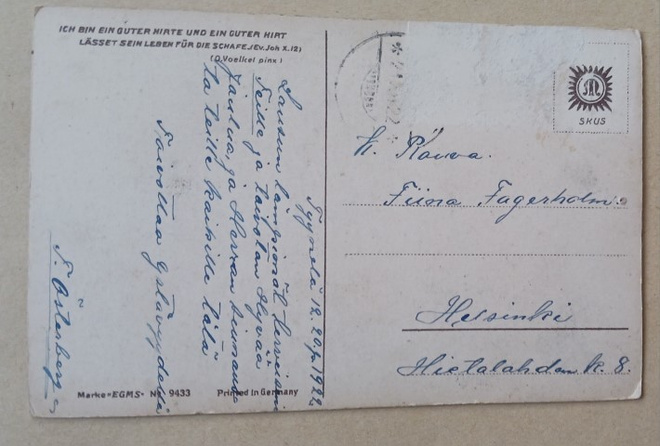 ICH BIN EIN GUTER HIRTE UND EIN GUTER HIRT
LÄSSET SEIN LEBEN FÜR DIE SCHAFE. (Ev. Joh X.12)
(O. Voelkel pinx)
Tyynelä 12. 20/p 1922
Lausun lämpimät terveiseni
Teille ja toivotan Hyvää
Joulua, ja Herran siunausta
Ta teille kaikille
Toivottaa Ystävyydellä
F. Österberg
SKUS
H. Rouva.
Fiina Fagerholm.
Helsinki
Hietalahden k. 8.
Marke »EGMS« No 9433
Printed in Germany